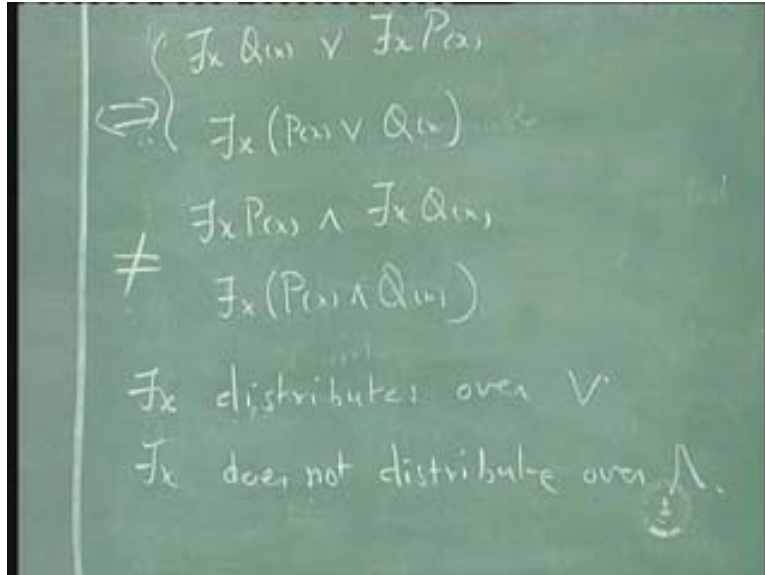 ⇔ { ∃x Q(x) ∨ ∃x P(x)
∃x (P(x) ∨ Q(x))
≠ ∃x P(x) ∧ ∃x Q(x)
∃x (P(x) ∧ Q(x))
∃x distributes over ∨.
∃x does not distribute over ∧.